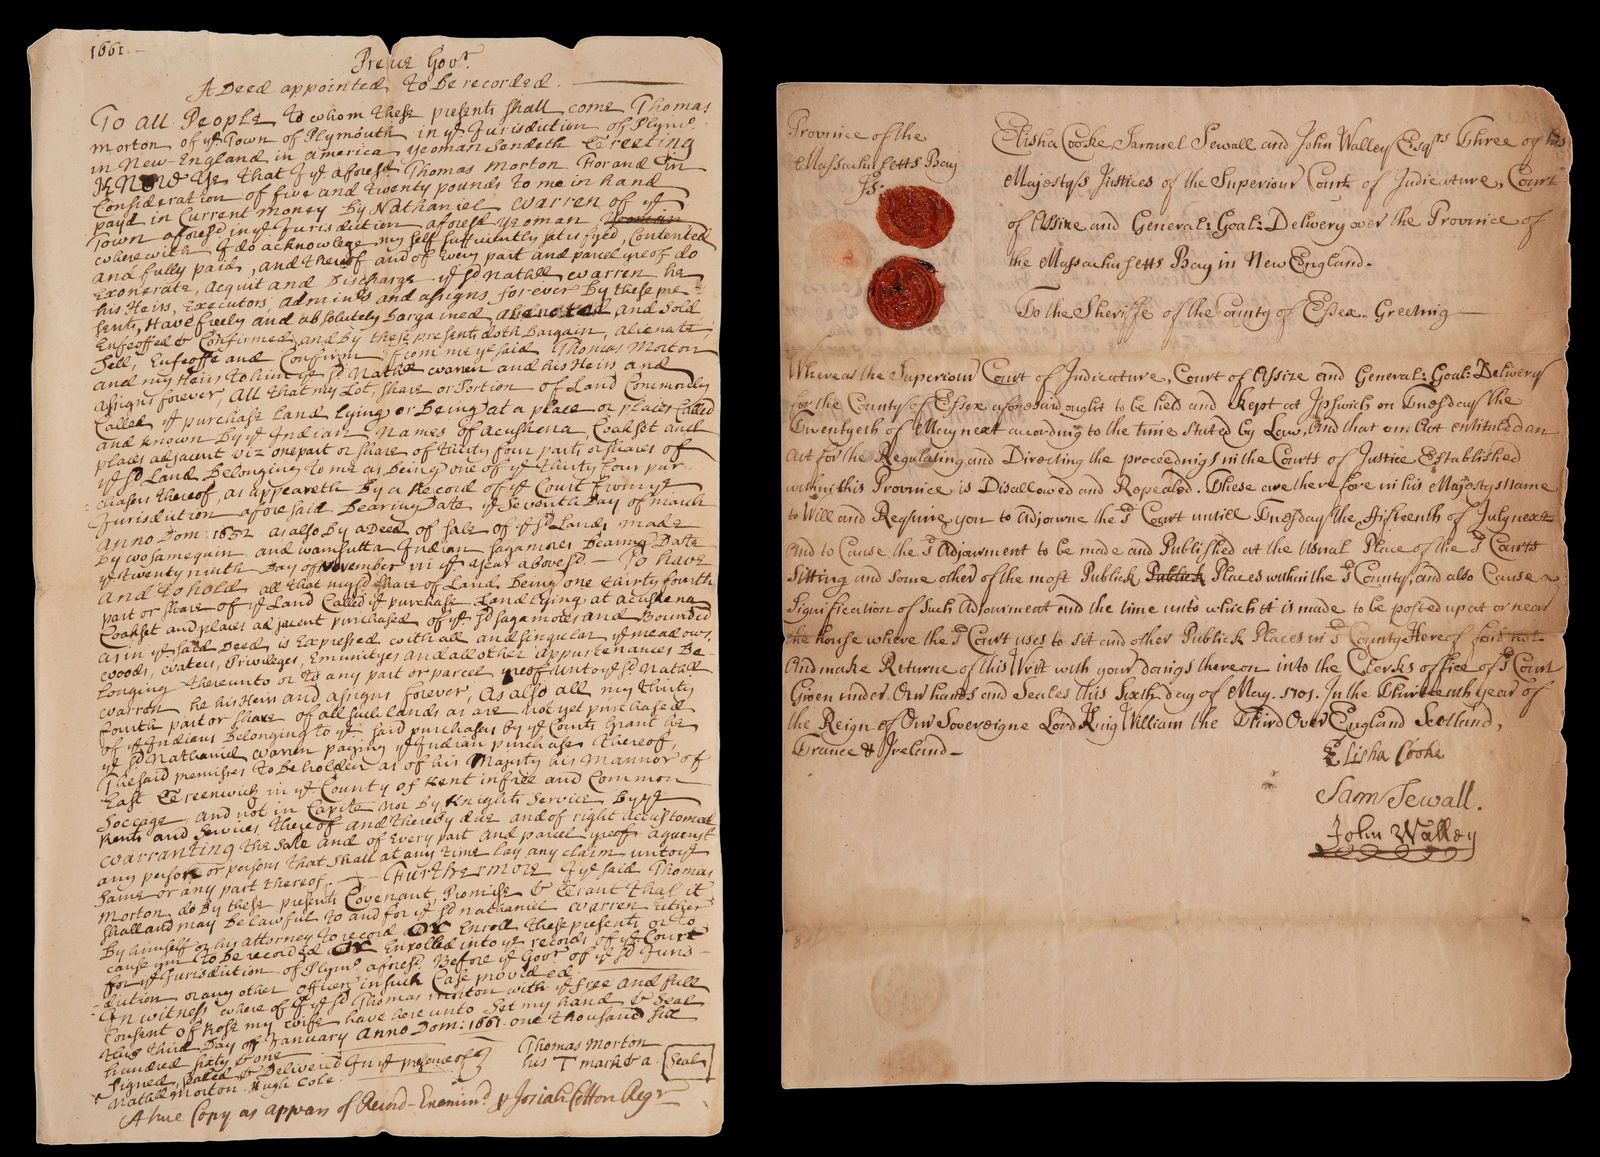 1661.
Prence Govr.
A Deed appointed to be recorded.
To all People to whom these presents shall come Thomas
morton of ye Town of Plymouth in ye Jurisdiction of Plymo.
in New-England in america yeoman Sendeth Greeting
KNOW Ye that I ye aforesd Thomas Morton For and in
Consideration of five and twenty pounds to me in hand
payd in Current money by Nathaniel warren of ye
Town aforesd in ye Jurisdiction aforesd yeoman
wherewith I do acknowledge my self sufficiently satisfyed, Contented
and fully paid, and thereof and of every part and parcel yreof do
Exonerate, acquit and Discharge ye sd Nathll warren he
his Heirs, Executors, admin's and assigns forever By these pre-
sents, Have freely and absolutely bargained and Sold
Enfeoffed & Confirmed and by these presents doth Bargain, alienate,
Sell, Enfeoffe and Confirm from me ye said Thomas Morton
and my Heirs to him ye sd Nathll warren and his Heirs and
assigns forever, All that my Lot, share or Portion of Land Commonly
Called ye purchase Land lying or being at a place or places Called
and known by ye Indian Names of acushena Coakset and
places adjacent viz one part or share of thirty four parts or shares of
ye sd Land Belonging to me as being one of ye thirty four pur-
chasers thereof, as appeareth By a Record of ye Court from ye
Jurisdiction aforesaid Bearing Date ye Seventh Day of march
anno Dom: 1652 as also by a Deed of sale of ye sd Lands made
by wosamequin and wamsutta Indian sagamores Bearing Date
ye twenty ninth Day of November in ye year abovesd. — To have
and to hold all that my sd share of Land Being one thirty fourth
part or share of ye Land Called ye purchase Land lying at acushena
Coakset and places adjacent purchased of ye sd sagamores and Bounded
as in ye said Deed is Expressed with all and singular ye meadows,
woods, waters, Priviledges, Emunityes and all other appurtenances Be-
longing thereunto or to any part or parcel yreof unto ye sd Nathll
warren he his Heirs and assigns forever, As also all my thirty
fourth part or share of all such lands as are not yet purchased
of ye Indians Belonging to ye said purchasers by ye Courts Grant he
ye sd Nathaniel warren paying ye Indian purchase thereof,
The said premises to be holden as of his Majesty his Mannor of
East Greenwich in ye County of Kent in free and Common
Soccage and not in Capite nor by Knights Service By ye
Rents and Services thereof and thereby due and of right accustomed
warranting the sale and of every part and parcel yreof against
any person or persons that shall at any time lay any claim unto ye
same or any part thereof. — Furthermore I ye said Thomas
Morton do By these presents Covenant, Promise & Grant that it
shall and may be lawful to and for ye sd nathaniel warren Either
By himself or his attorney to record OR Enroll these presents or to
cause ym to be recorded OR Enrolled into ye records of ye Court
for ye Jurisdiction of Plymo. aforesd Before ye Govr of ye sd Juris-
-diction or any other officers in such Case provided.
In witness where of I ye sd Thomas Morton with ye free and full
Consent of Rose my wife have here unto Set my hand & Seal
this third Day of January Anno Dom: 1661 one thousand six
hundred sixty & one
Signed, sealed & Delivered In ye presence of
Nathll Morton. Hugh Cole.
Thomas Morton
his T mark & a Seal
A true Copy as appears of Record - Examind p Josiah Cotton Regr
Province of the
Massachusetts Bay
Ss.
Elisha Cooke Samuel Sewall and John Walley Esqrs Three of his
Majestyss Justices of the Superiour Court of Judicature, Court
of Assize and General: Goal: Delivery over the Province of
the Massachusetts Bay in New England.
To the Sheriffe of the County of Essex. Greeting
Whereas the Superiour Court of Judicature, Court of Assize and General: Goal: Delivery
for the County of Essex aforesaid ought to be held and Kept at Ipswich on Tuesday the
Twentyeth of May next according to the time Stated by Law, And that an Act entituled an
Act for the Regulating and Directing the proceedings in the Courts of Justice Established
within this Province is Disallowed and Repealed. These are therefore in his Majestys Name
to Will and Require you to Adjourne the sd Court untill Tuesday the fifteenth of July next
And to Cause the sd Adjourment to be made and Published at the Usual Place of the sd Courts
Sitting and some other of the most Publick Publick Places within the sd County, and also Cause a
Signification of Such Adjourment and the time unto which it is made to be posted up at or near
the house where the sd Court uses to sitt and other Publick Places in sd County Hereof fail not
And make Returne of this Writt with your doings thereon into the Clerks office of sd Court
Given under Our hands and Seales this Sixth day of May. 1701. In the Thirteenth year of
the Reign of Our Sovereigne Lord King William the Third Over England Scotland,
France & Ireland —
Elisha Cooke
Sam Sewall.
John Walley